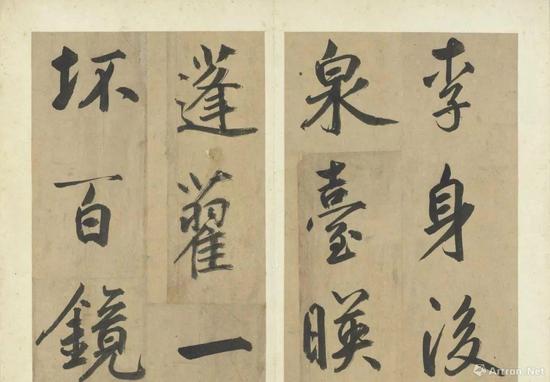 李身後
泉臺暎
蓬藋一
坏百鏡
Artron.Net